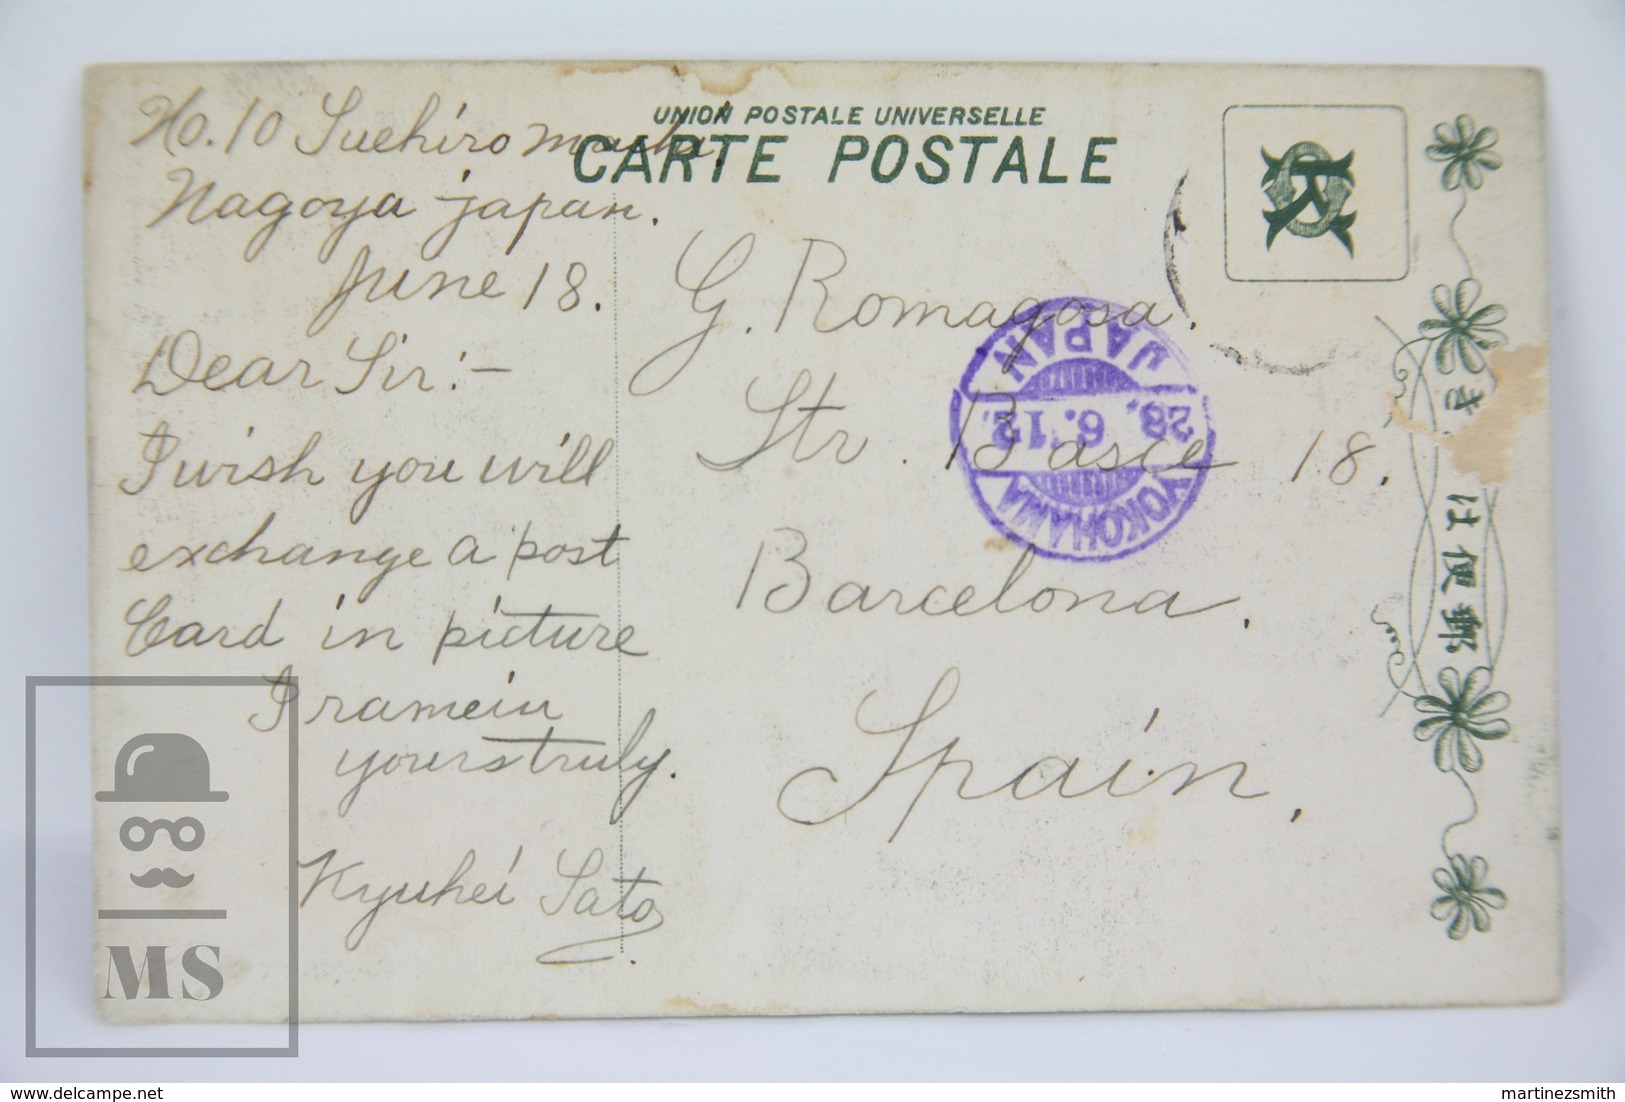 UNION POSTALE UNIVERSELLE
CARTE POSTALE
No. 10 Suehiro machi,
Nagoya Japan.
June 18.
Dear Sir:-
I wish you will
exchange a post
Card in picture
I ramein
yours truly.
Kyuhei Sato
G. Romagosa.
Str. Basce 18.
Barcelona.
Spain.
YOKOHAMA
28. 6. 12.
JAPAN
き
は便郵
MS
martinezsmith